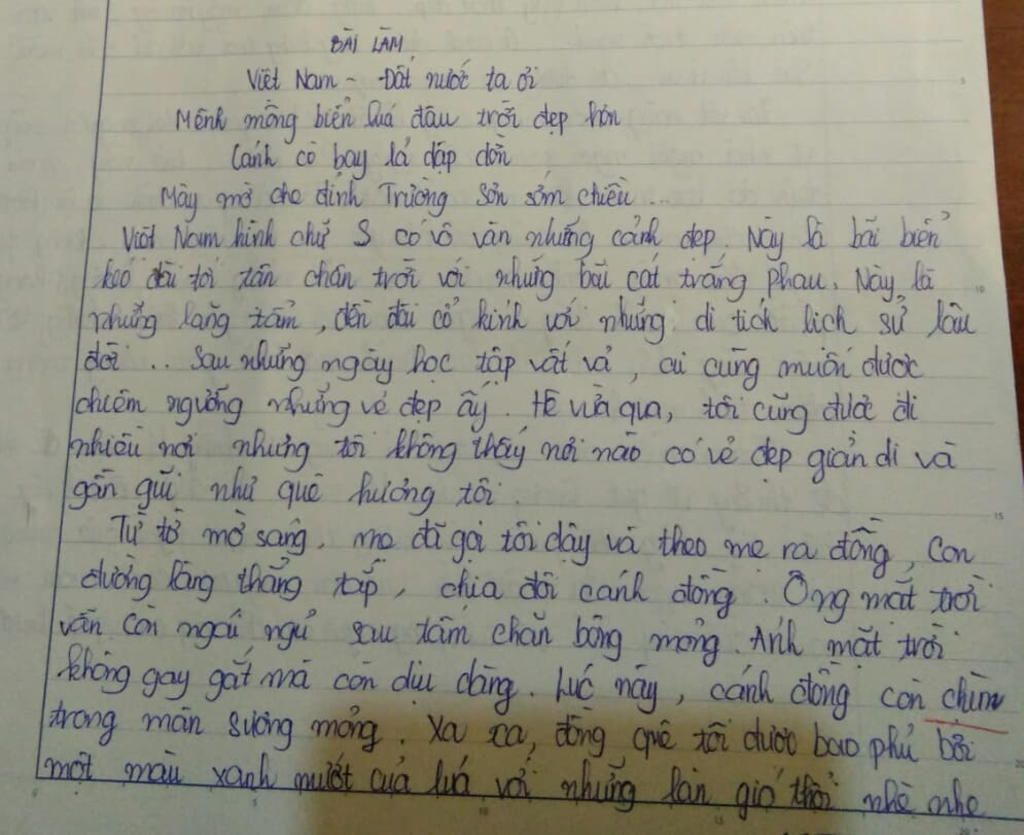 BÀI LÀM
Việt Nam - Đất nước ta ơi
Mênh mông biển lúa đâu trời đẹp hơn
Cánh cò bay lả dập dờn
Mây mờ che đỉnh Trường Sơn sớm chiều...
Việt Nam hình chữ S có vô vàn những cảnh đẹp. Này là bãi biển
kéo dài tới tận chân trời với những bãi cát trắng phau. Này là
những lăng tẩm, đền đài cổ kính với những di tích lịch sử lâu
đời ... Sau những ngày học tập vất vả, ai cũng muốn được
chiêm ngưỡng những vẻ đẹp ấy. Hè vừa qua, tôi cũng được đi
nhiều nơi nhưng tôi không thấy nơi nào có vẻ đẹp giản dị và
gần gũi như quê hương tôi.
Từ tờ mờ sáng, mẹ đã gọi tôi dậy và theo mẹ ra đồng, con
đường làng thẳng tắp, chia đôi cánh đồng. Ông mặt trời
vẫn còn ngái ngủ sau tấm chăn bông mỏng. Ánh mặt trời
không gay gắt mà còn dịu dàng. Lúc này, cánh đồng còn chìm
trong màn sương mỏng. Xa xa, đồng quê tôi được bao phủ bởi
một màu xanh mướt của lúa với những làn gió thổi nhè nhẹ